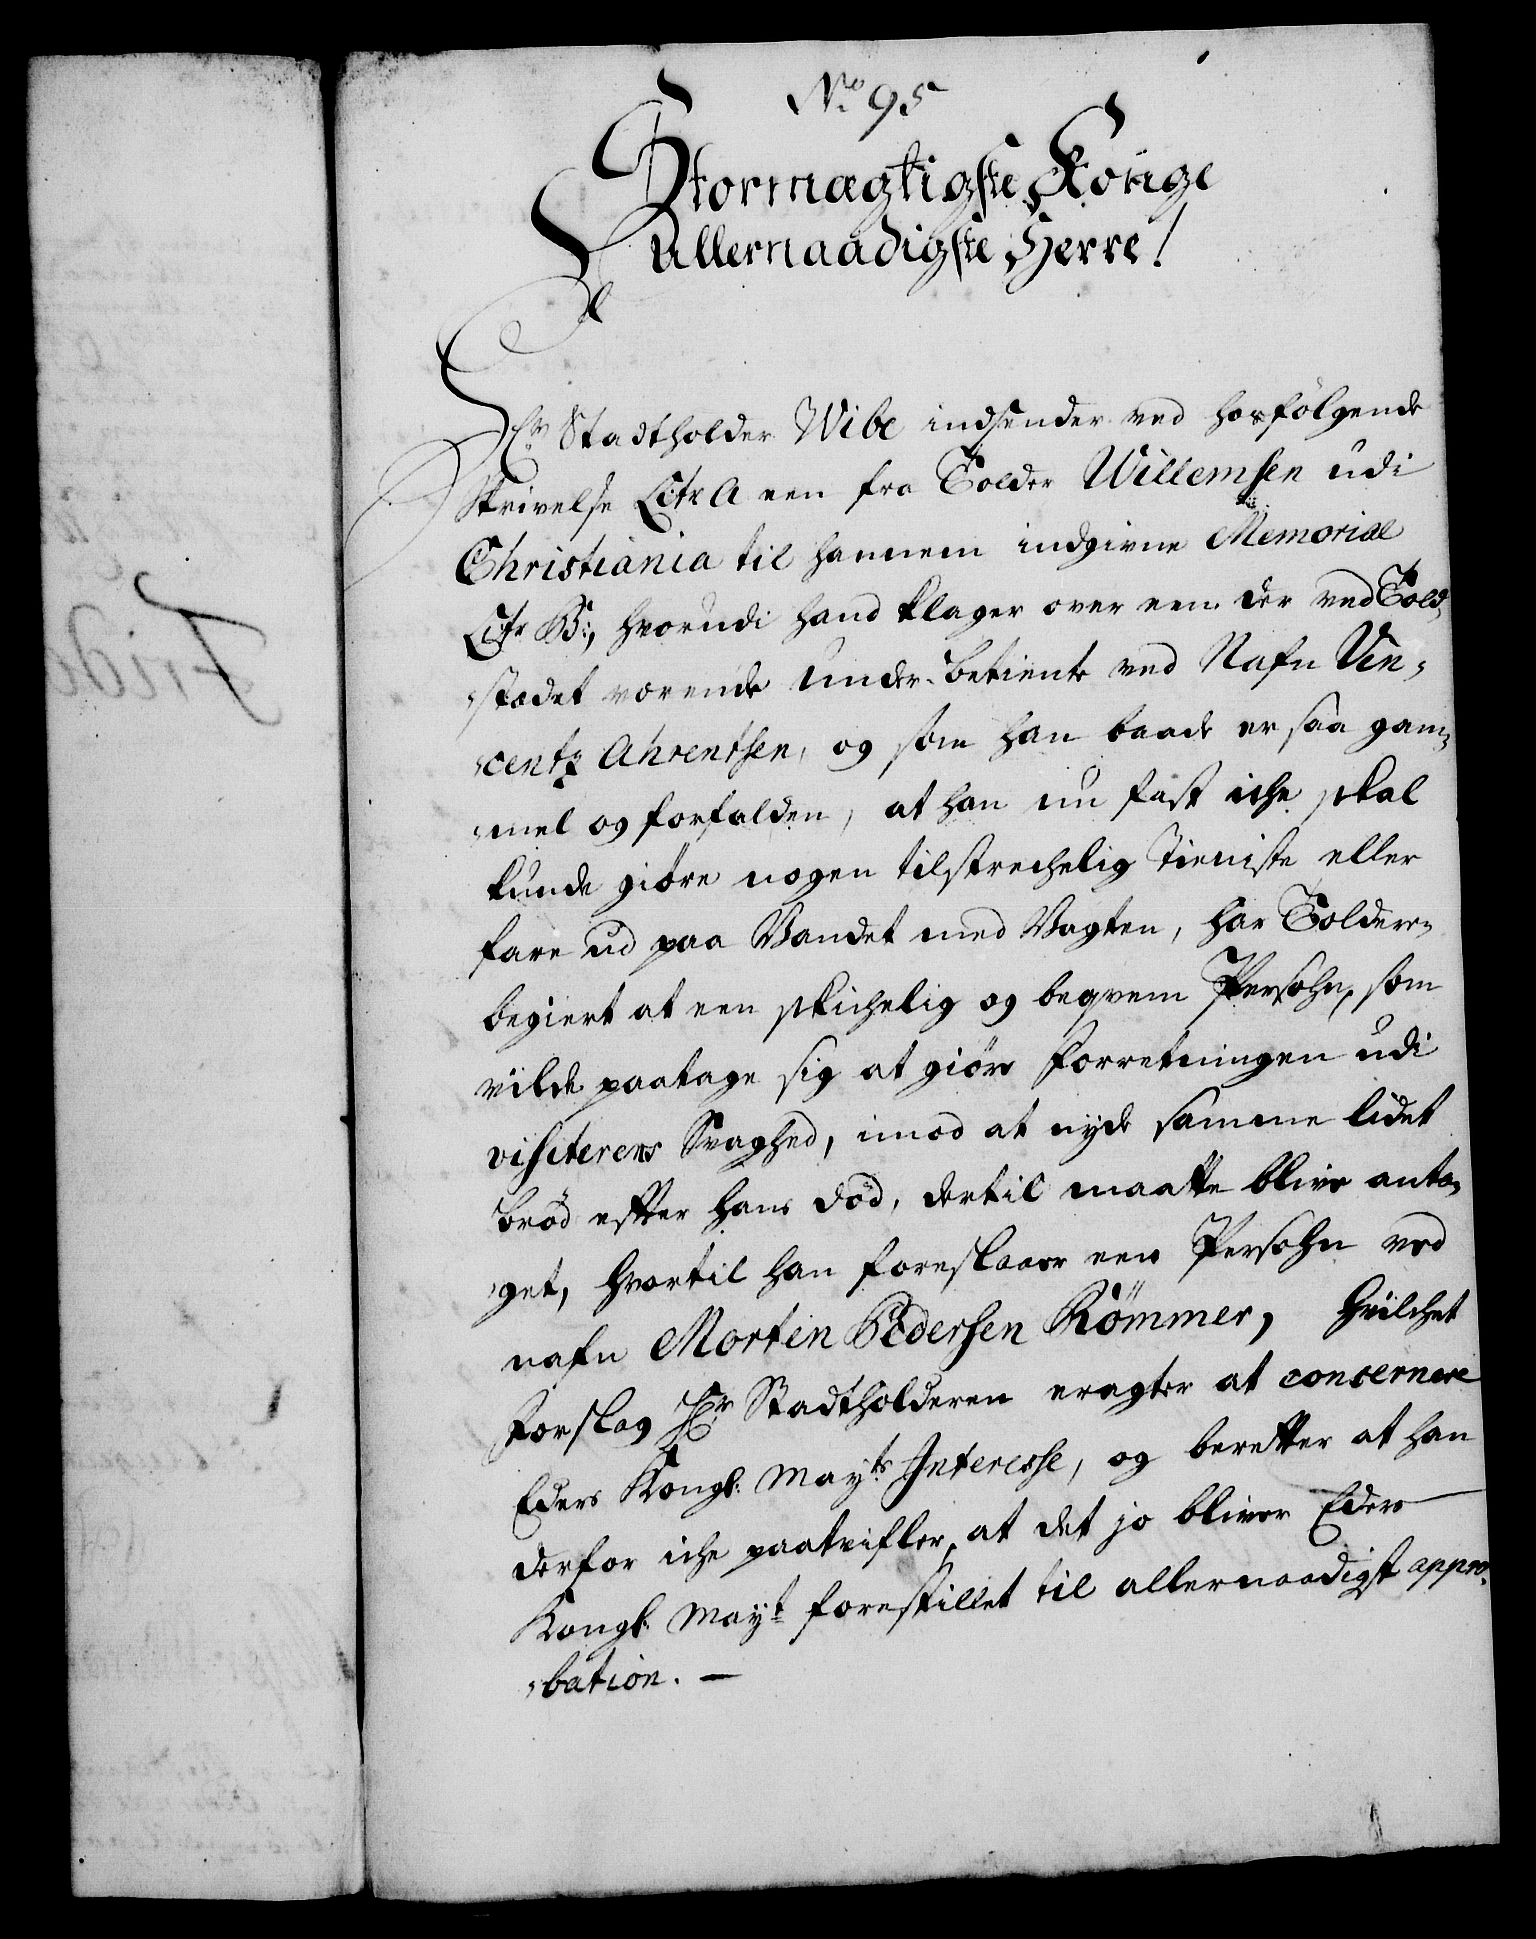 No 95
Stormægtigste Konge
Allernaadigste Herre!
Hr Stadtholder Wibe indsender ved hosfölgende
Skrivelse Litr A een fra Tolder Willemsen udi
Christiania til hannem indgivne Memorial
Litr B:, hvorudi hand klager over een der ved Told,
,stædet værende Under-betiente ved Nafn Vin,
,centz Ahrentsen, og som han baade er saa gam,
,mel og forfalden, at han nu fast iche skal
kunde giöre nogen tilstrechelig Tieniste eller
fare ud paa Vandet med Vagten, har Tolderen
begiert at een skichelig og beqvem Persohn, som
vilde paatage sig at giöre Forretningen udi
visiterens Svaghed, imod at nyde samme lidet
bröd efter hans död, dertil maatte blive anta,
,get, hvortil han foreslaaer een Persohn ved
nafn Morten Pedersen Römmer, hvilchet
Forslag Hr Stadtholderen eragter at concernere
Eders Kongl: Mayts Interesse, og beretter at han
derfor iche paatvifler, at det jo bliver Eders
Kongl: Mayt forestillet til allernaadigst appro,
,bation. —